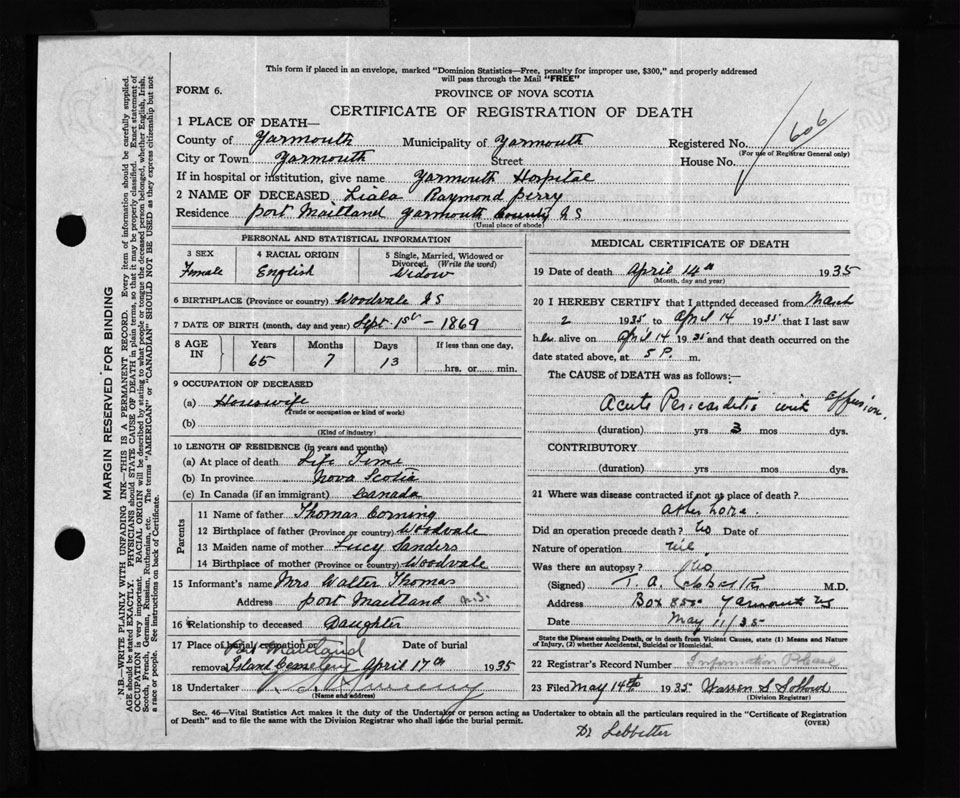 This form if placed in an envelope, marked "Dominion Statistics—Free, penalty for improper use, $300," and properly addressed
will pass through the Mail "FREE"
FORM 6.
PROVINCE OF NOVA SCOTIA
CERTIFICATE OF REGISTRATION OF DEATH
606
1 PLACE OF DEATH—
County of Yarmouth Municipality of Yarmouth Registered No.
(For use of Registrar General only)
City or Town Yarmouth Street House No.
If in hospital or institution, give name Yarmouth Hospital
2 NAME OF DECEASED Liala Raymond Perry
Residence Port Maitland Yarmouth County N S
(Usual place of abode)
MARGIN RESERVED FOR BINDING
N.B.—WRITE PLAINLY WITH UNFADING INK—THIS IS A PERMANENT RECORD. Every item of information should be carefully supplied.
AGE should be stated EXACTLY. PHYSICIANS should STATE CAUSE OF DEATH in plain terms, so that it may be properly classified. Exact statement of
OCCUPATION is very important. RACIAL ORIGIN will be described by stating to what people or tongue the deceased person belonged, whether English, Irish,
Scotch, French, German, Russian, Ruthenian, etc. The terms "AMERICAN" or "CANADIAN" SHOULD NOT BE USED as they express citizenship but not
a race or people. See instructions on back of Certificate.
PERSONAL AND STATISTICAL INFORMATION
3 SEX
Female
4 RACIAL ORIGIN
English
5 Single, Married, Widowed or
Divorced. (Write the word)
Widow
6 BIRTHPLACE (Province or country) Woodvale N S
7 DATE OF BIRTH (month, day and year) Sept. 1st – 1869
8 AGE IN
Years Months Days If less than one day,
65 7 13 hrs. or min.
9 OCCUPATION OF DECEASED
(a) Housewife
(Trade or occupation or kind of work)
(b)
(Kind of industry)
10 LENGTH OF RESIDENCE (in years and months)
(a) At place of death Life Time
(b) In province Nova Scotia
(c) In Canada (if an immigrant) Canada
Parents
11 Name of father Thomas Corning
12 Birthplace of father (Province or country) Woodvale
13 Maiden name of mother Lucy Sanders
14 Birthplace of mother (Province or country) Woodvale
15 Informant's name Mrs Walter Thomas
Address Port Maitland N.S.
16 Relationship to deceased Daughter
17 Place of burial, cremation or Date of burial
Port Maitland
removal Island Cemetery April 17th 1935
18 Undertaker
(Name and address)
MEDICAL CERTIFICATE OF DEATH
19 Date of death April 14th 1935
(Month, day and year)
20 I HEREBY CERTIFY that I attended deceased from March
2 1935 to April 14 1935 that I last saw
her alive on April 14 1935 and that death occurred on the
date stated above, at 5 P. m.
The CAUSE of DEATH was as follows:—
Acute Pericarditis with effusion.
(duration) yrs 3 mos dys.
CONTRIBUTORY
(duration) yrs. mos. dys.
21 Where was disease contracted if not at place of death?
At her home.
Did an operation precede death? No Date of
Nature of operation nil
Was there an autopsy? No.
(Signed) T. A. Lebbetter M.D.
Address Box 850 Yarmouth NS
Date May 11/35
State the Disease causing Death, or in death from Violent Causes, state (1) Means and Nature
of Injury, (2) whether Accidental, Suicidal or Homicidal.
22 Registrar's Record Number Information Please
23 Filed May 14th 1935 Warren S
(Division Registrar)
Sec. 46—Vital Statistics Act makes it the duty of the Undertaker or person acting as Undertaker to obtain all the particulars required in the "Certificate of Registration
of Death" and to file the same with the Division Registrar who shall issue the burial permit. (OVER)
Dr Lebbetter